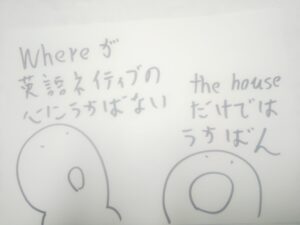 Whereが
英語ネイティブの
心にうちばない
the house
だけでは
うちばん